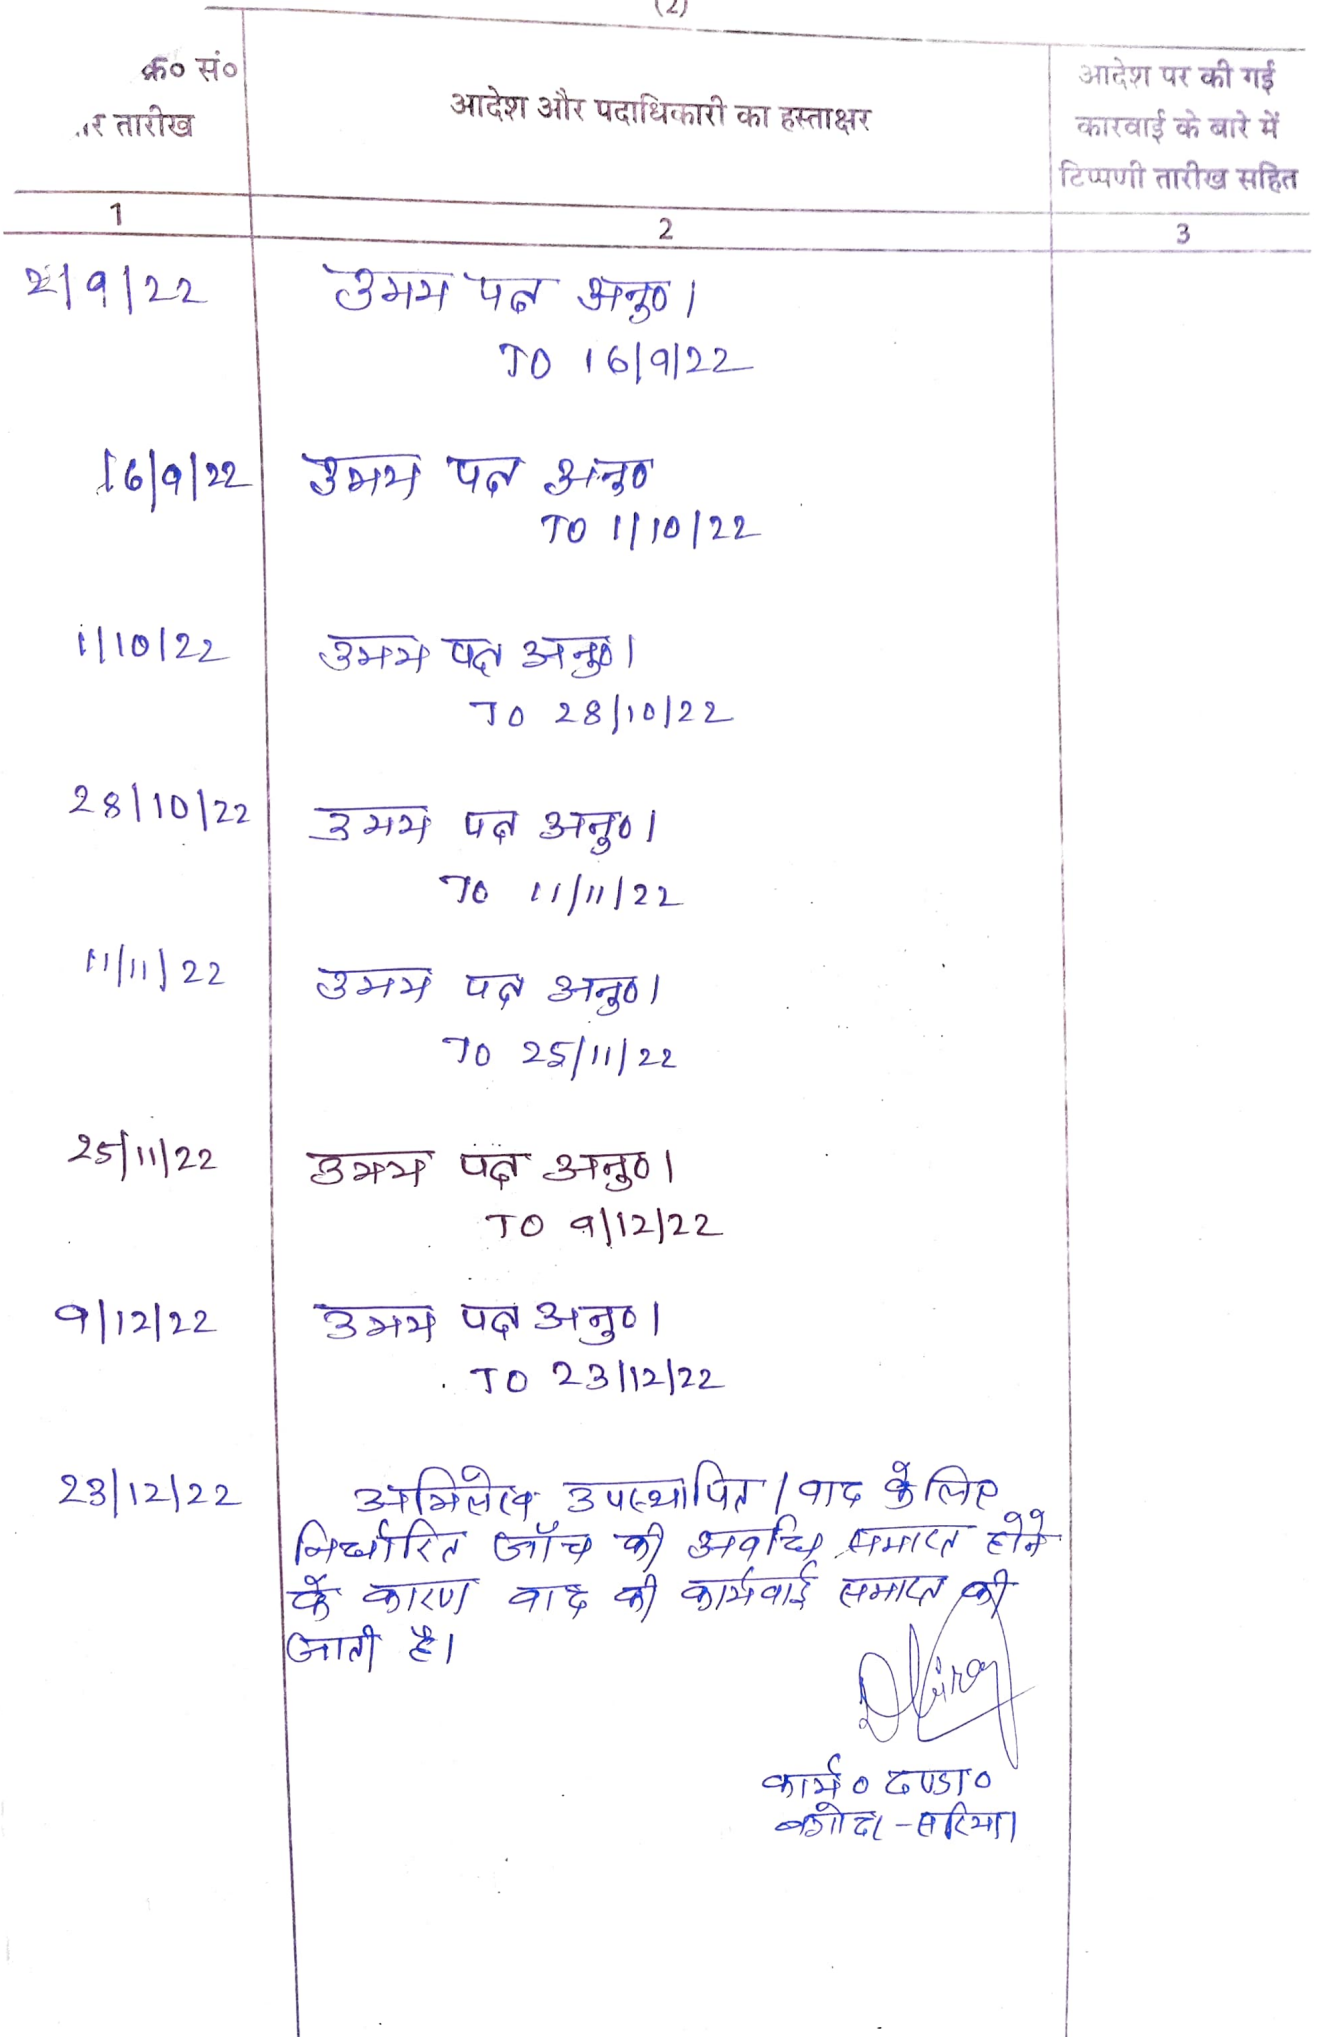 (2)
क्र० सं०
र तारीख
आदेश और पदाधिकारी का हस्ताक्षर
आदेश पर की गई
कारवाई के बारे में
टिप्पणी तारीख सहित
1 2 3
2/9/22 उभय पक्ष अनु०।
TO 16/9/22
16/9/22 उभय पक्ष अनु०
TO 1/10/22
1/10/22 उभय पक्ष अनु०।
TO 28/10/22
28/10/22 उभय पक्ष अनु०।
TO 11/11/22
11/11/22 उभय पक्ष अनु०।
TO 25/11/22
25/11/22 उभय पक्ष अनु०।
TO 9/12/22
9/12/22 उभय पक्ष अनु०।
TO 23/12/22
23/12/22 अभिलेख उपस्थापित। वाद के लिए
निर्धारित जाँच की अवधि समाप्त होने
के कारण वाद की कार्यवाई समाप्त की
जाती है।
कार्य० दण्डा०
बगोदर-सरिया।